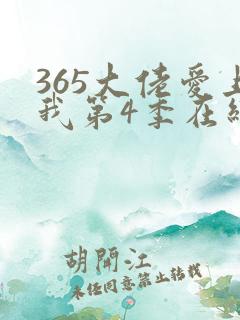 365大佬爱上
我第4季在线
胡開江
未经同意禁止转载